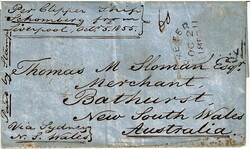 Per Clipper Ship
Schomberg from
Liverpool, Octr. 5. 1855.
Paid by Stamp
Thomas M Sloman Esqr.
Merchant
Bathurst
New South Wales
Australia.
Via Sydney
N. S. Wales